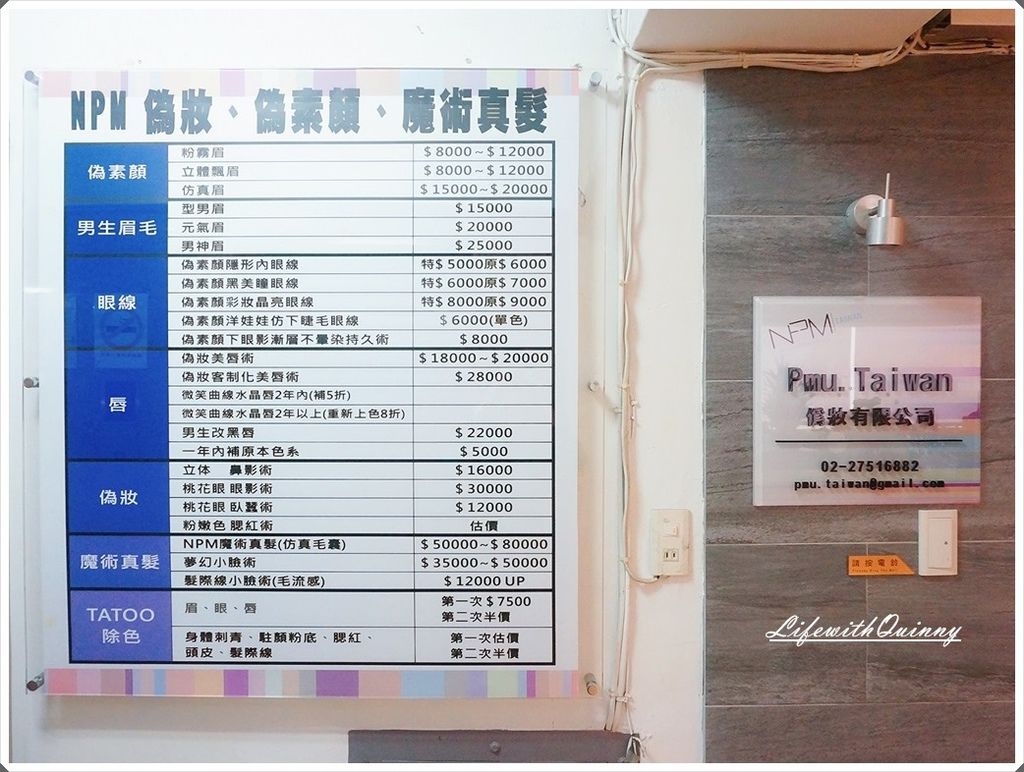 NPM 偽妝、偽素顏、魔術真髮
偽素顏
粉霧眉 $8000~$12000
立體飄眉 $8000~$12000
仿真眉 $15000~$20000
男生眉毛
型男眉 $15000
元氣眉 $20000
男神眉 $25000
眼線
偽素顏隱形內眼線 特$5000原$6000
偽素顏黑美瞳眼線 特$6000原$7000
偽素顏彩妝晶亮眼線 特$8000原$9000
偽素顏洋娃娃仿下睫毛眼線 $6000(單色)
偽素顏下眼影漸層不暈染持久術 $8000
唇
偽妝美唇術 $18000~$20000
偽妝客制化美唇術 $28000
微笑曲線水晶唇2年內(補5折)
微笑曲線水晶唇2年以上(重新上色8折)
男生改黑唇 $22000
一年內補原本色系 $5000
偽妝
立体 鼻影術 $16000
桃花眼 眼影術 $30000
桃花眼 臥蠶術 $12000
粉嫩色 腮紅術 估價
魔術真髮
NPM魔術真髮(仿真毛囊) $50000~$80000
夢幻小臉術 $35000~$50000
髮際線小臉術(毛流感) $12000 UP
TATOO
除色
眉、眼、唇 第一次$7500
第二次半價
身體刺青、駐顏粉底、腮紅、 第一次估價
頭皮、髮際線 第二次半價
NPM TAIWAN
Pmu.Taiwan
偽妝有限公司
02-27516882
pmu.taiwan@gmail.com
請按電鈴
LifewithQuinny